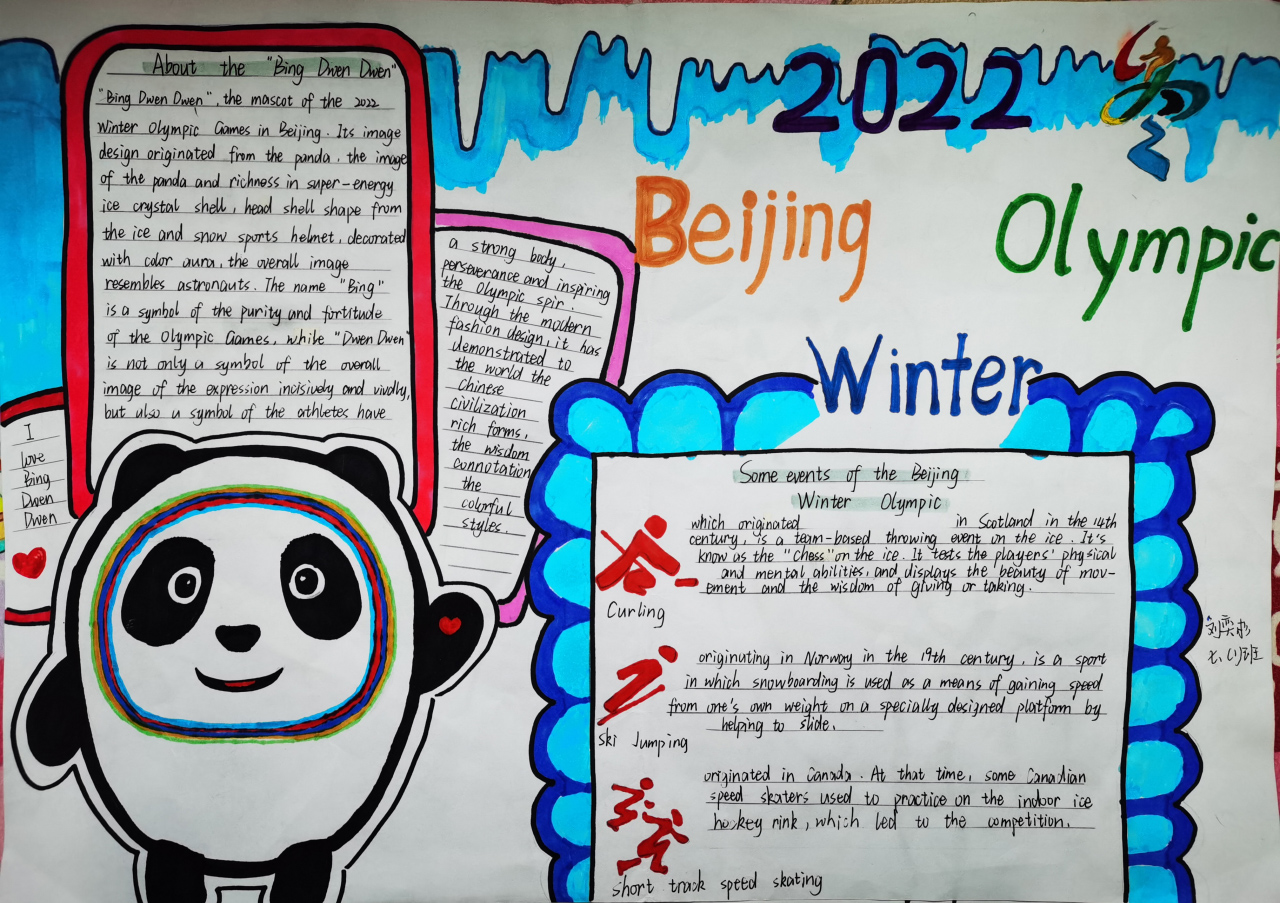 About the "Bing Dwen Dwen"
"Bing Dwen Dwen", the mascot of the 2022
Winter Olympic Games in Beijing. Its image
design originated from the panda, the image
of the panda and richness in super-energy
ice crystal shell, head shell shape from
the ice and snow sports helmet, decorated
with color aura, the overall image
resembles astronauts. The name "Bing"
is a symbol of the purity and fortitude
of the Olympic Games, while "Dwen Dwen"
is not only a symbol of the overall
image of the expression incisively and vivdly,
but also a symbol of the athletes have
a strong body,
perseverance and inspiring
the Olympic spir.
Through the modern
fashion design, it has
demonstrated to
the world the
chinese
civilization
rich forms,
the wisdom
connotation
the
colorful
styles.
I
love
Bing
Dwen
Dwen
2022
Beijing Olympic
Winter
Some events of the Beijing
Winter Olympic
which originated in Scotland in the 14th
century, is a team-based throwing event on the ice. It's
know as the "Chess" on the ice. It tests the players' physical
and mental abilities, and displays the beauty of mov-
ement and the wisdom of giving or taking.
Curling
originating in Norway in the 19th century, is a sport
in which snowboarding is used as a means of gaining speed
from one's own weight on a specially designed platform by
helping to slide.
Ski Jumping
originated in Canada. At that time, some Canadian
speed skaters used to practice on the indoor ice
hockey rink, which led to the competition.
short track speed skating
刘奕杉
七、(1)班